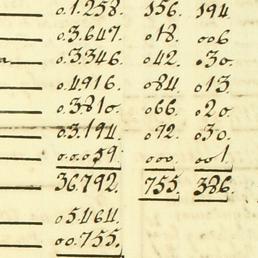 o.1.258. 156. 194
o.3.647. o18. oo6
a o.3.346. o42. o30.
o.4.916. o84. o13
o.3.810. o66. o20.
o.3.194 o72. o30.
o.o.o59. ooo. oo1
36.792. 755. 386.
o.5.464.
o.o.755.